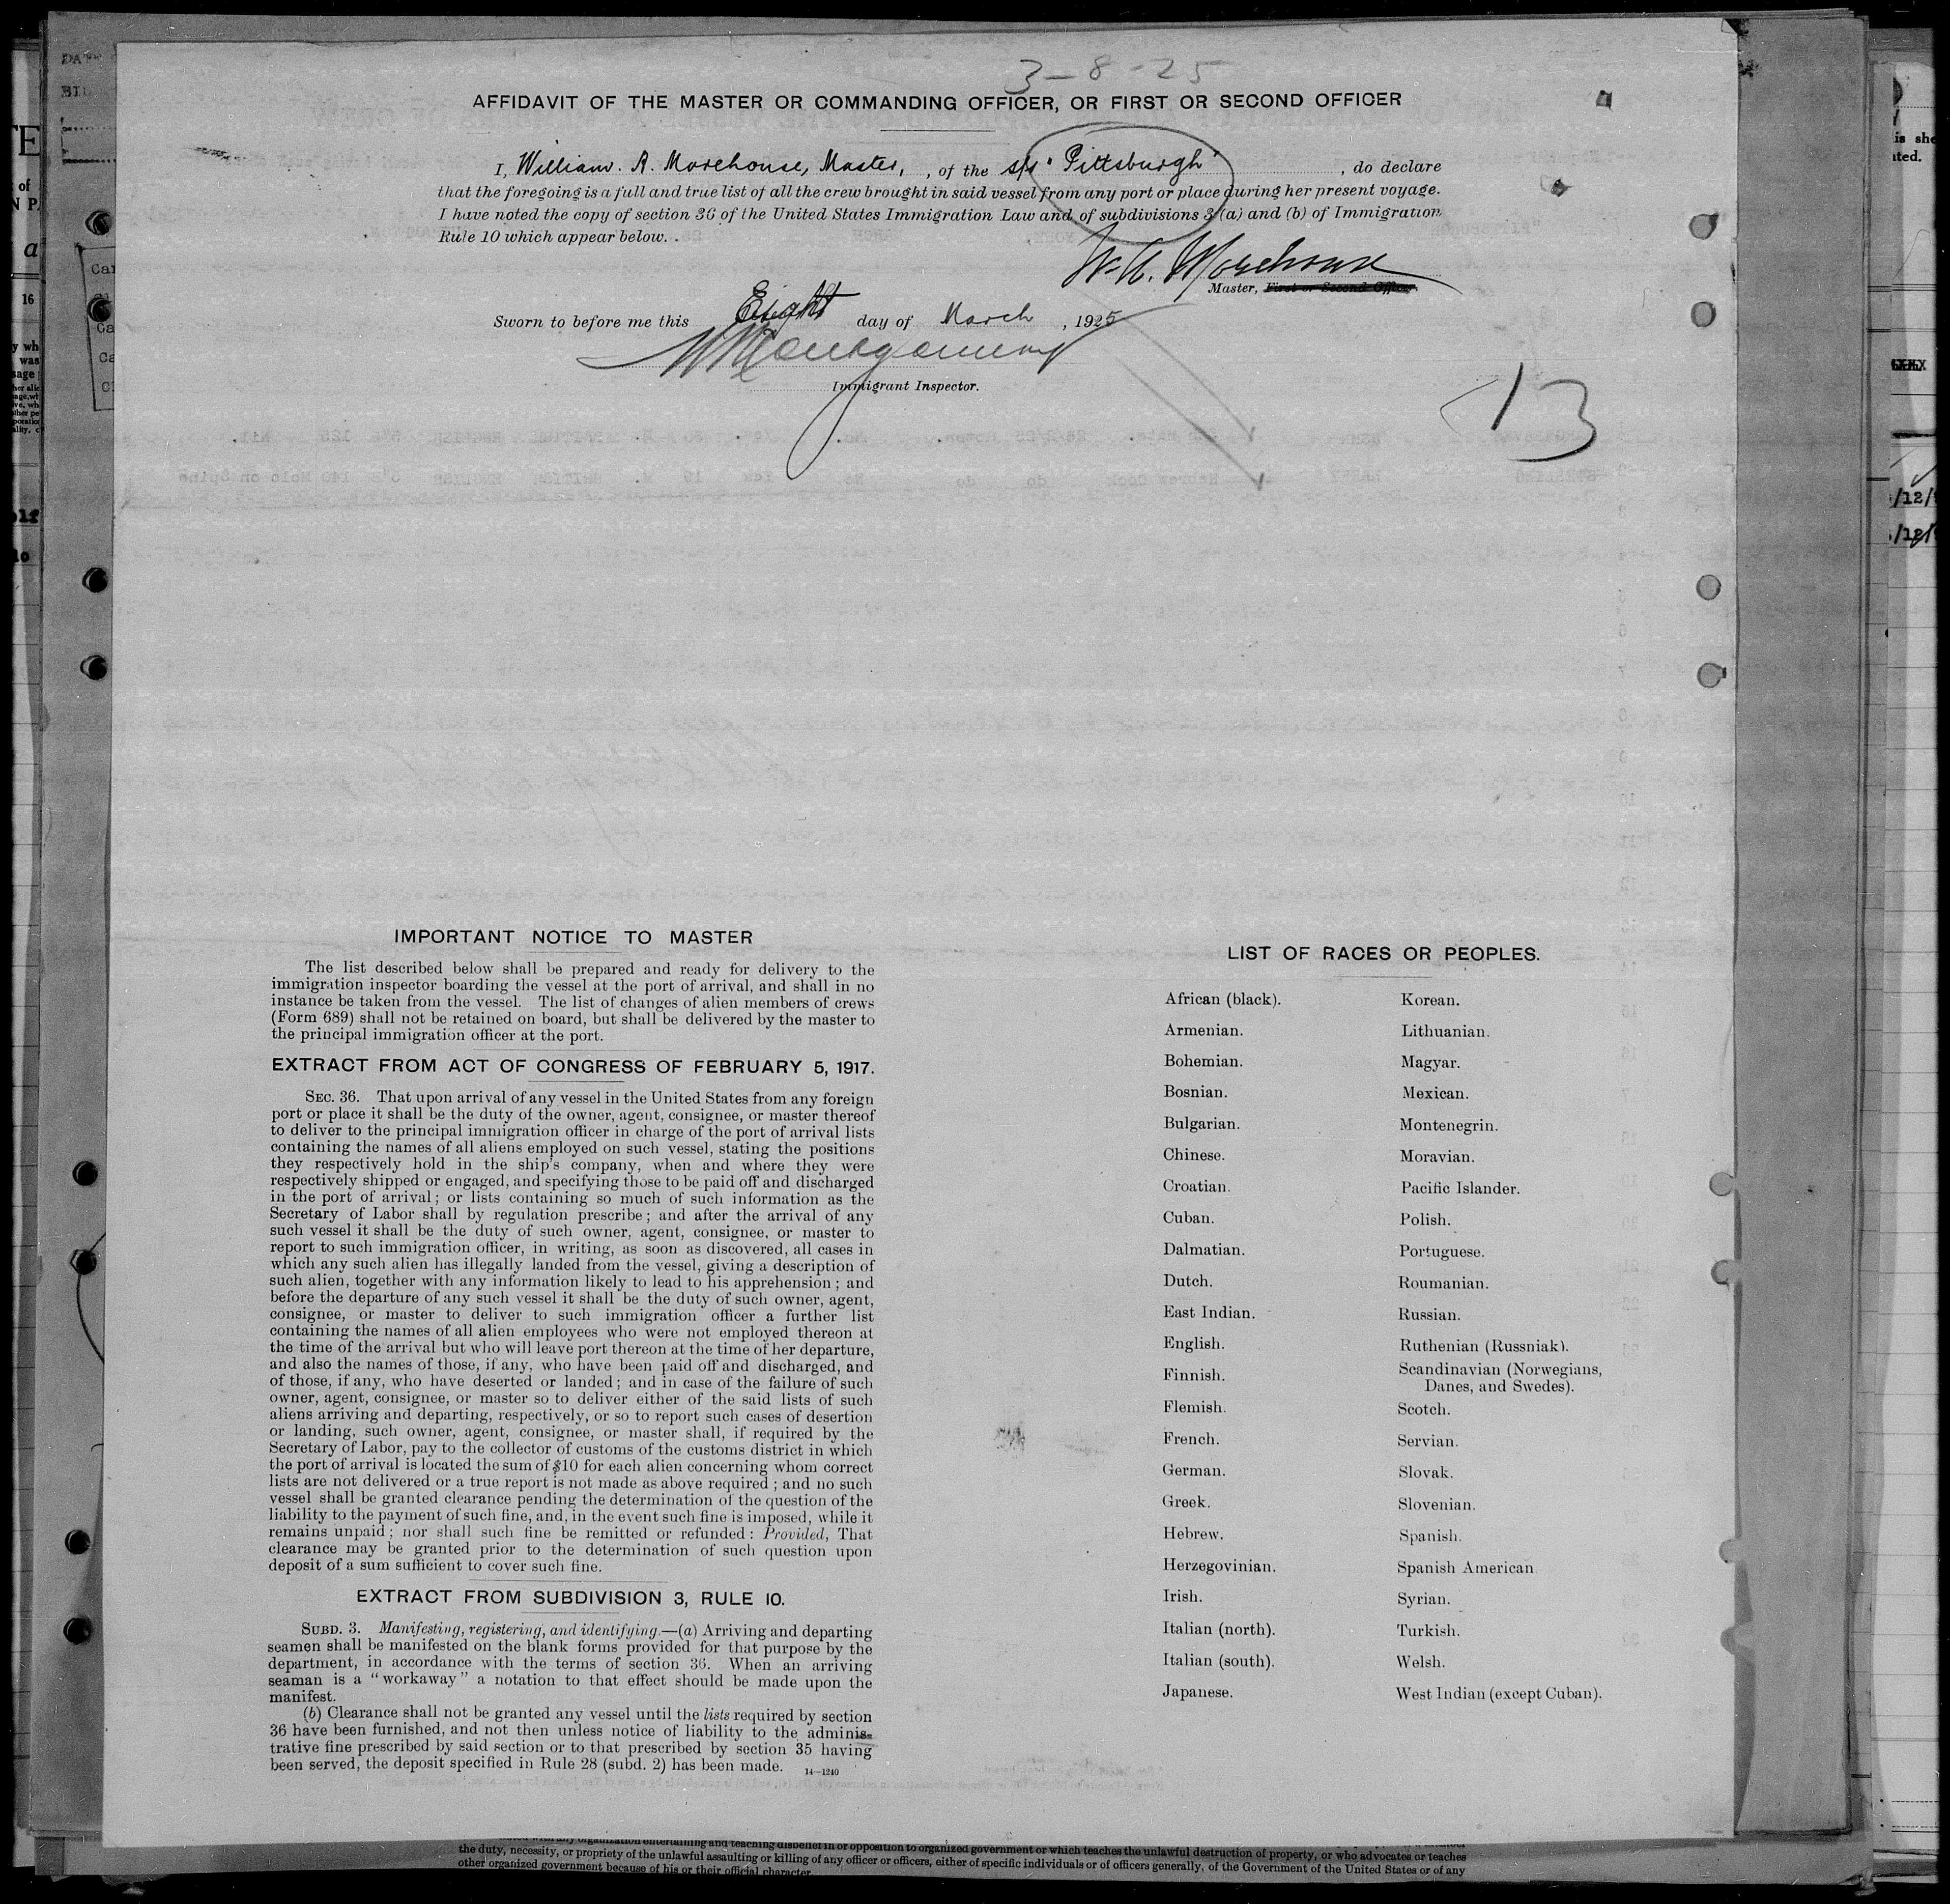 3-8-25
AFFIDAVIT OF THE MASTER OR COMMANDING OFFICER, OR FIRST OR SECOND OFFICER
I, William. R. Morehouse, Master, , of the s/s "Pittsburgh" , do declare
that the foregoing is a full and true list of all the crew brought in said vessel from any port or place during her present voyage.
I have noted the copy of section 36 of the United States Immigration Law and of subdivisions 3 (a) and (b) of Immigration
Rule 10 which appear below.
Morehouse
Master, First or Second Officer.
Sworn to before me this Eight day of March , 1925
Montgomery
Immigrant Inspector.
13
IMPORTANT NOTICE TO MASTER
The list described below shall be prepared and ready for delivery to the
immigration inspector boarding the vessel at the port of arrival, and shall in no
instance be taken from the vessel. The list of changes of alien members of crews
(Form 689) shall not be retained on board, but shall be delivered by the master to
the principal immigration officer at the port.
EXTRACT FROM ACT OF CONGRESS OF FEBRUARY 5, 1917.
SEC. 36. That upon arrival of any vessel in the United States from any foreign
port or place it shall be the duty of the owner, agent, consignee, or master thereof
to deliver to the principal immigration officer in charge of the port of arrival lists
containing the names of all aliens employed on such vessel, stating the positions
they respectively hold in the ship's company, when and where they were
respectively shipped or engaged, and specifying those to be paid off and discharged
in the port of arrival; or lists containing so much of such information as the
Secretary of Labor shall by regulation prescribe; and after the arrival of any
such vessel it shall be the duty of such owner, agent, consignee, or master to
report to such immigration officer, in writing, as soon as discovered, all cases in
which any such alien has illegally landed from the vessel, giving a description of
such alien, together with any information likely to lead to his apprehension; and
before the departure of any such vessel it shall be the duty of such owner, agent,
consignee, or master to deliver to such immigration officer a further list
containing the names of all alien employees who were not employed thereon at
the time of the arrival but who will leave port thereon at the time of her departure,
and also the names of those, if any, who have been paid off and discharged, and
of those, if any, who have deserted or landed; and in case of the failure of such
owner, agent, consignee, or master so to deliver either of the said lists of such
aliens arriving and departing, respectively, or so to report such cases of desertion
or landing, such owner, agent, consignee, or master shall, if required by the
Secretary of Labor, pay to the collector of customs of the customs district in which
the port of arrival is located the sum of $10 for each alien concerning whom correct
lists are not delivered or a true report is not made as above required; and no such
vessel shall be granted clearance pending the determination of the question of the
liability to the payment of such fine, and, in the event such fine is imposed, while it
remains unpaid; nor shall such fine be remitted or refunded: Provided, That
clearance may be granted prior to the determination of such question upon
deposit of a sum sufficient to cover such fine.
EXTRACT FROM SUBDIVISION 3, RULE 10.
SUBD. 3. Manifesting, registering, and identifying.—(a) Arriving and departing
seamen shall be manifested on the blank forms provided for that purpose by the
department, in accordance with the terms of section 36. When an arriving
seaman is a "workaway" a notation to that effect should be made upon the
manifest.
(b) Clearance shall not be granted any vessel until the lists required by section
36 have been furnished, and not then unless notice of liability to the adminis-
trative fine prescribed by said section or to that prescribed by section 35 having
been served, the deposit specified in Rule 28 (subd. 2) has been made. 14—1240
LIST OF RACES OR PEOPLES.
African (black). Korean.
Armenian. Lithuanian.
Bohemian. Magyar.
Bosnian. Mexican.
Bulgarian. Montenegrin.
Chinese. Moravian.
Croatian. Pacific Islander.
Cuban. Polish.
Dalmatian. Portuguese.
Dutch. Roumanian.
East Indian. Russian.
English. Ruthenian (Russniak).
Finnish. Scandinavian (Norwegians,
Danes, and Swedes).
Flemish. Scotch.
French. Servian.
German. Slovak.
Greek. Slovenian.
Hebrew. Spanish.
Herzegovinian. Spanish American
Irish. Syrian.
Italian (north). Turkish.
Italian (south). Welsh.
Japanese. West Indian (except Cuban).
the duty, necessity, or propriety of the unlawful assaulting or killing of any officer or officers, either of specific individuals or of officers generally, of the Government of the United States or of any
other organized government because of his or their official character